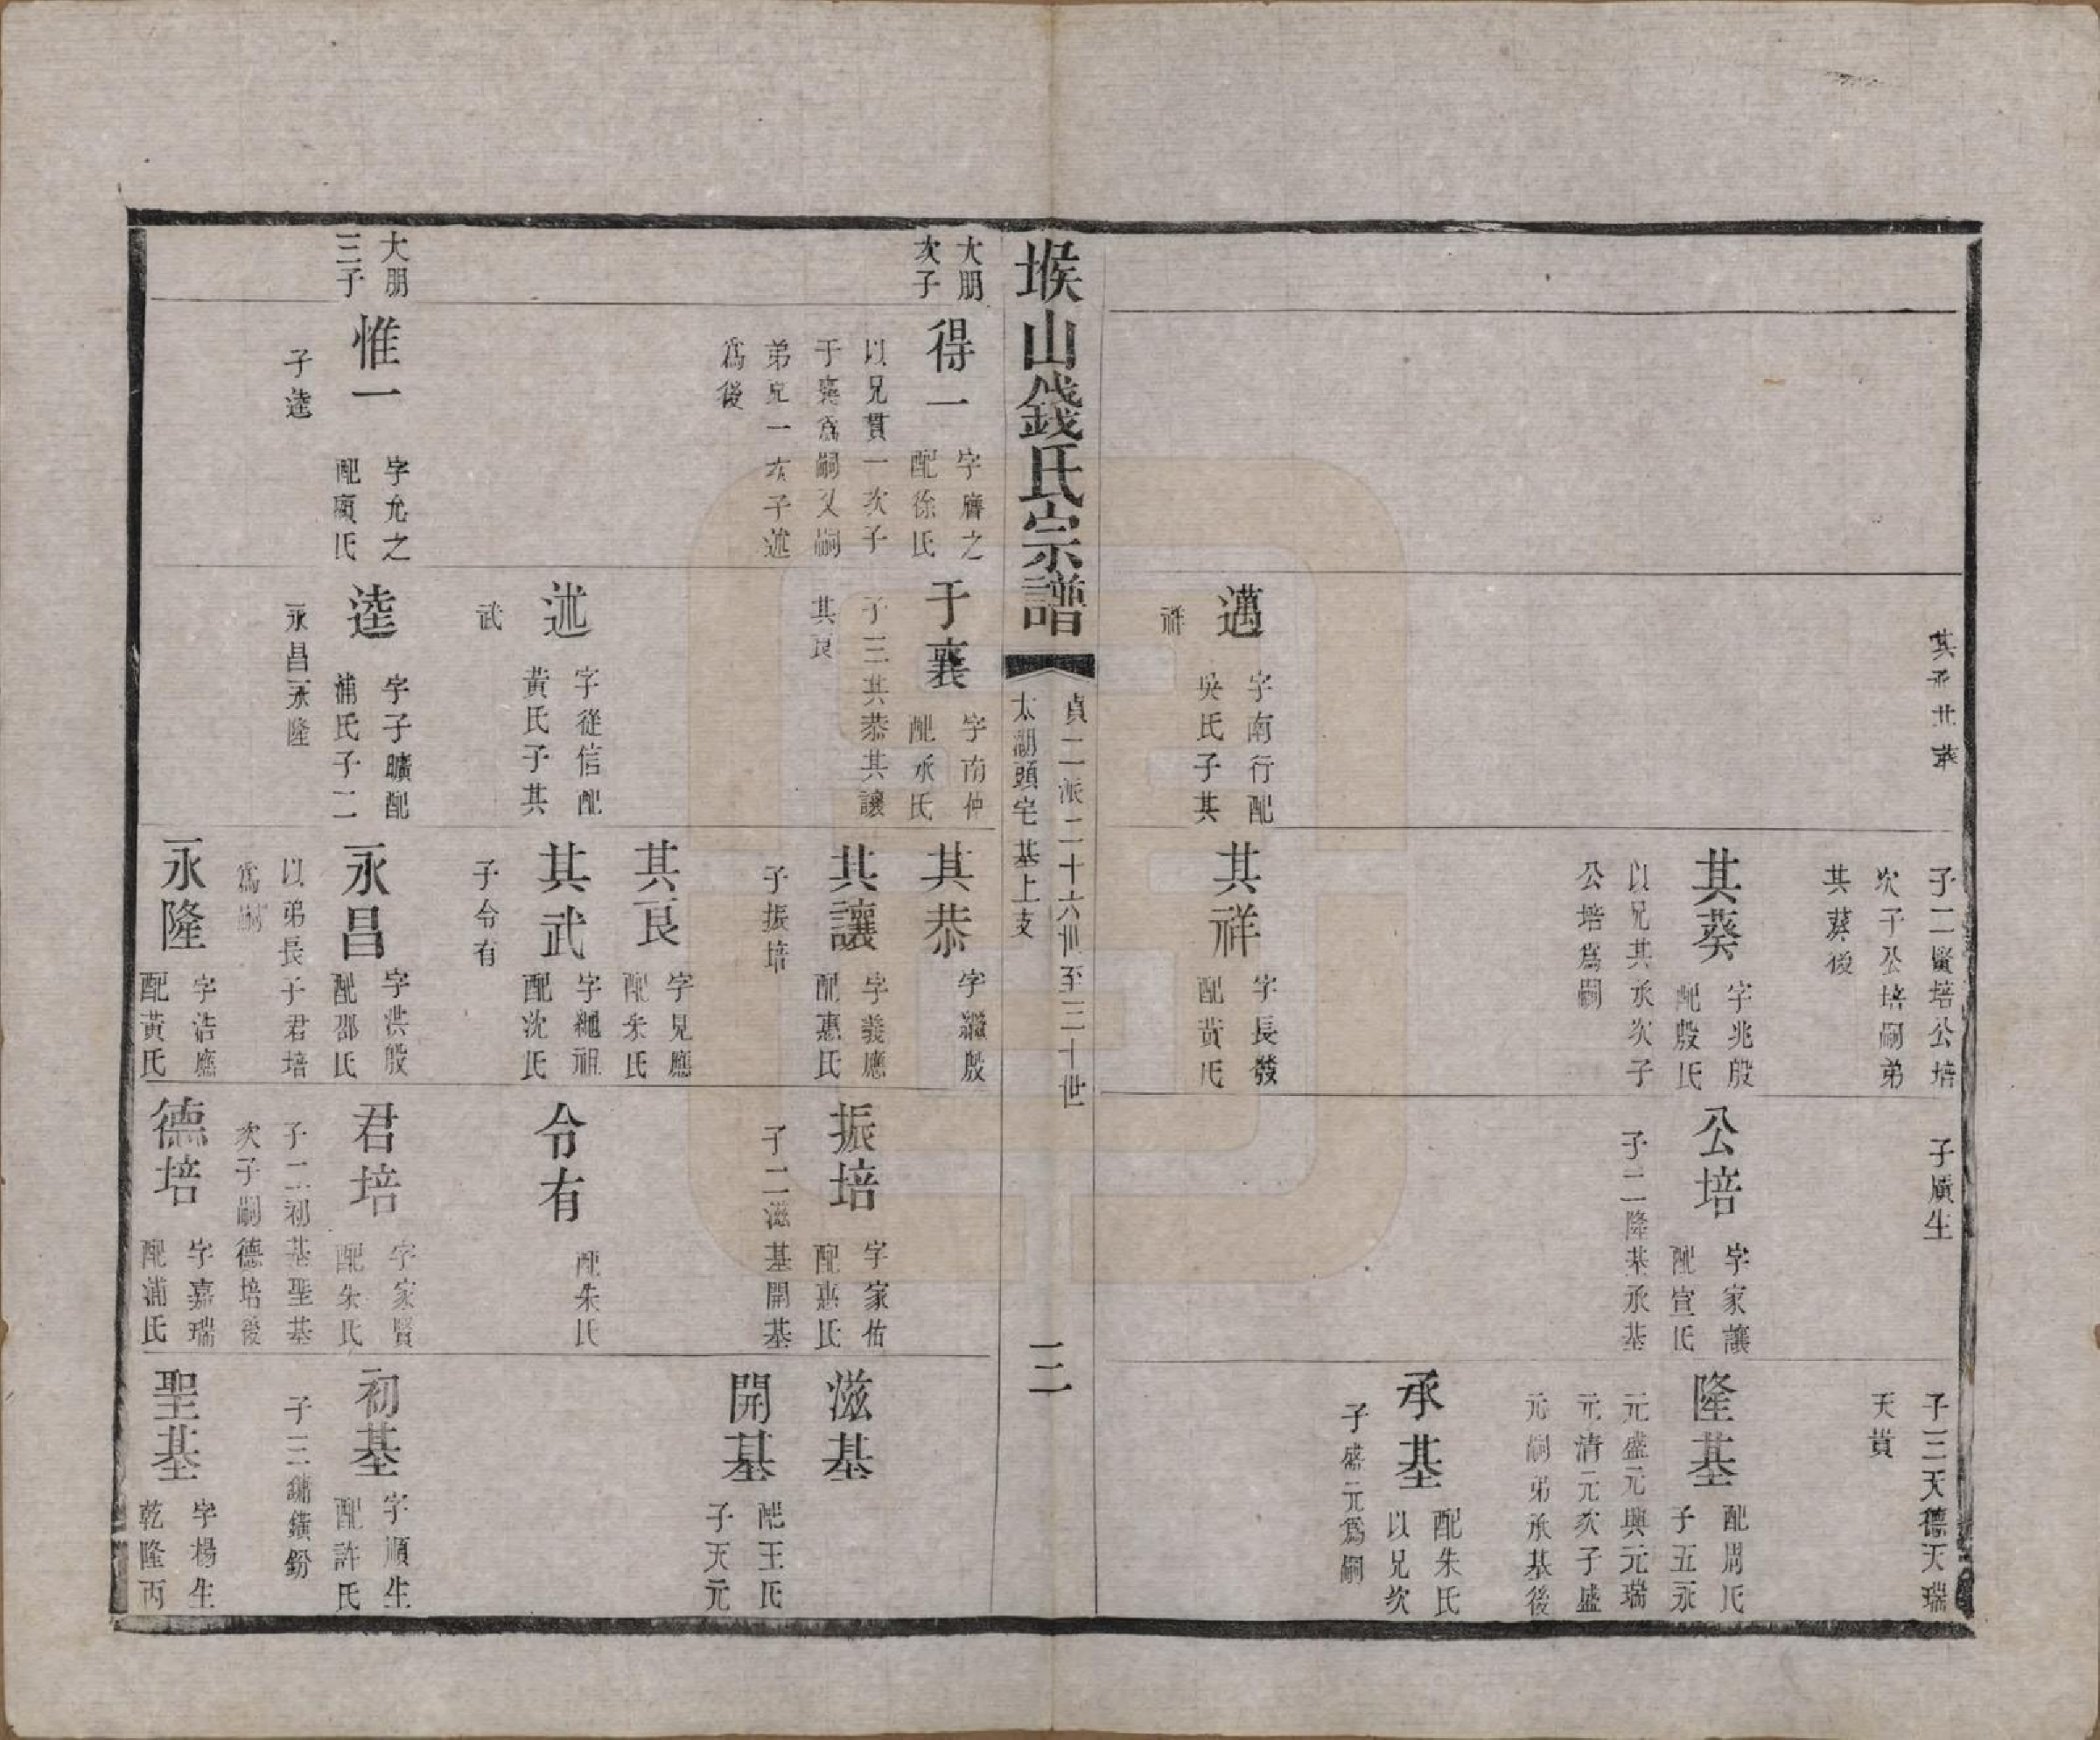 其承其葵
邁
字南行配
吳氏子其
祥
子二賢培公培
次子公培嗣弟
其葵後
其葵
字兆殷
配殷氏
以兄其承次子
公培爲嗣
其祥
字長發
配黃氏
子廣生
公培
字家讓
配宣氏
子二隆基承基
子三天德天瑞
天貴
隆基
配周氏
子五永
元盛元興元瑞
元清元次子盛
元嗣弟承基後
承基
配朱氏
以兄次
子盛元爲嗣
堠山錢氏宗譜
貞二一派二十六世至三十世
太湖頭宅基上支
三
大朋
次子
大朋
三子
得一
字膺之
配徐氏
以兄貫一次子
于襄爲嗣又嗣
弟克一次子述
爲後
惟一
字允之
配顧氏
子逵
于襄
字南仲
配承氏
子三其恭其讓
其良
述
字從信配
黃氏子其
武
逵
字子曠配
浦氏子二
永昌永隆
其恭
字繼殷
其讓
字義應
配惠氏
子振培
其良
字見應
配朱氏
其武
字繩祖
配沈氏
子令有
永昌
字洪殷
配邵氏
以弟長子君培
爲嗣
永隆
字浩應
配黃氏
振培
字家佑
配惠氏
子二滋基開基
令有
配朱氏
君培
字家賢
配朱氏
子二初基聖基
次子嗣德培後
德培
字嘉瑞
配浦氏
滋基
開基
配王氏
子天元
初基
字順生
配許氏
子三鏞鐄鈖
聖基
字楊生
乾隆丙